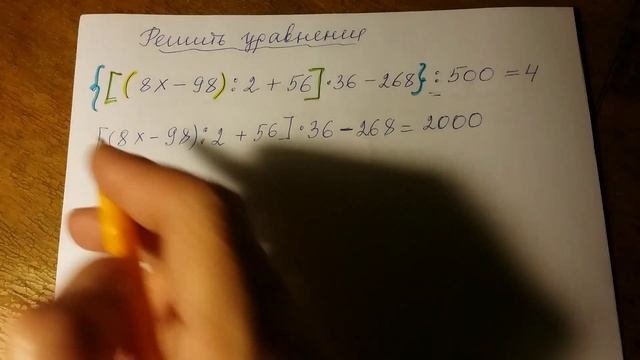 Решить уравнение
{[(8x − 98) : 2 + 56] · 36 − 268} : 500 = 4
[(8x − 98) : 2 + 56] · 36 − 268 = 2000